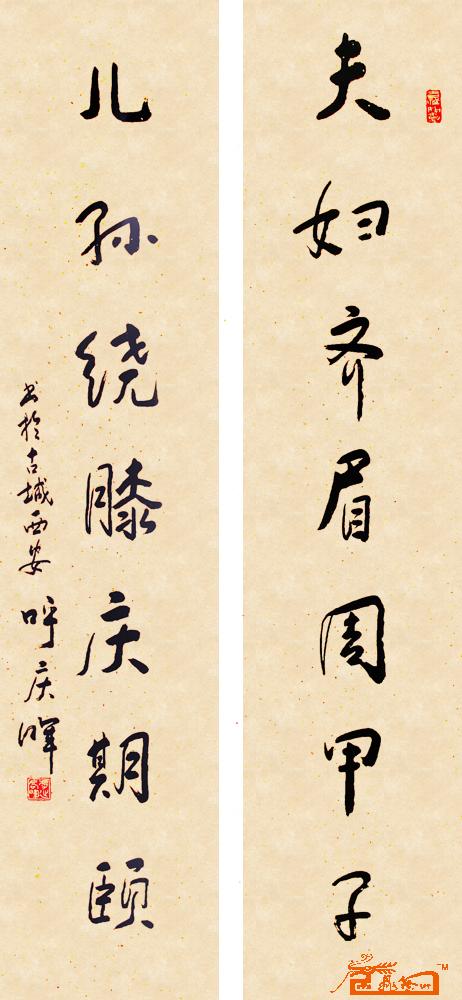 夫妇齐眉周甲子
儿孙绕膝庆期颐
书於古城西安
呼庆晖